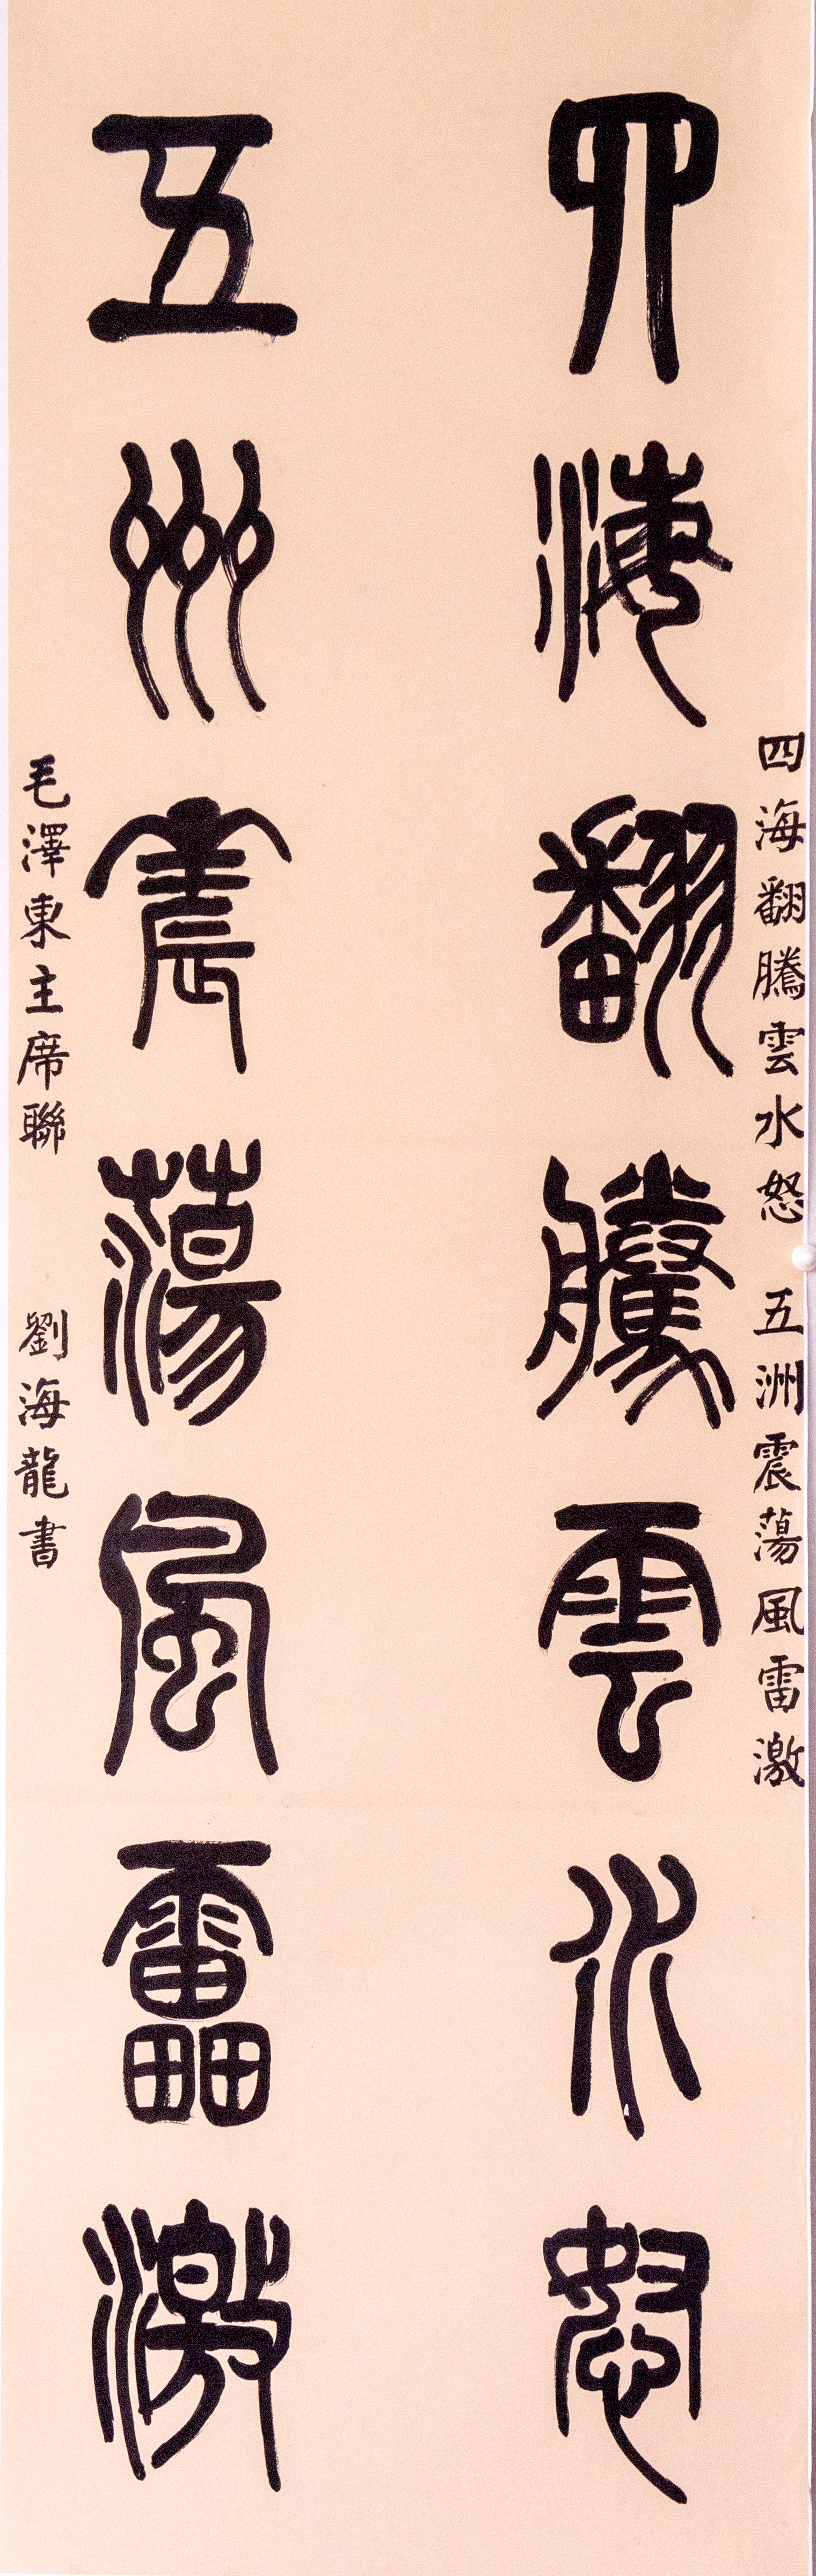 四海翻騰雲水怒 五洲震蕩風雷激
四海翻騰雲水怒
五州震蕩風靁激
毛澤東主席聯 劉海龍書